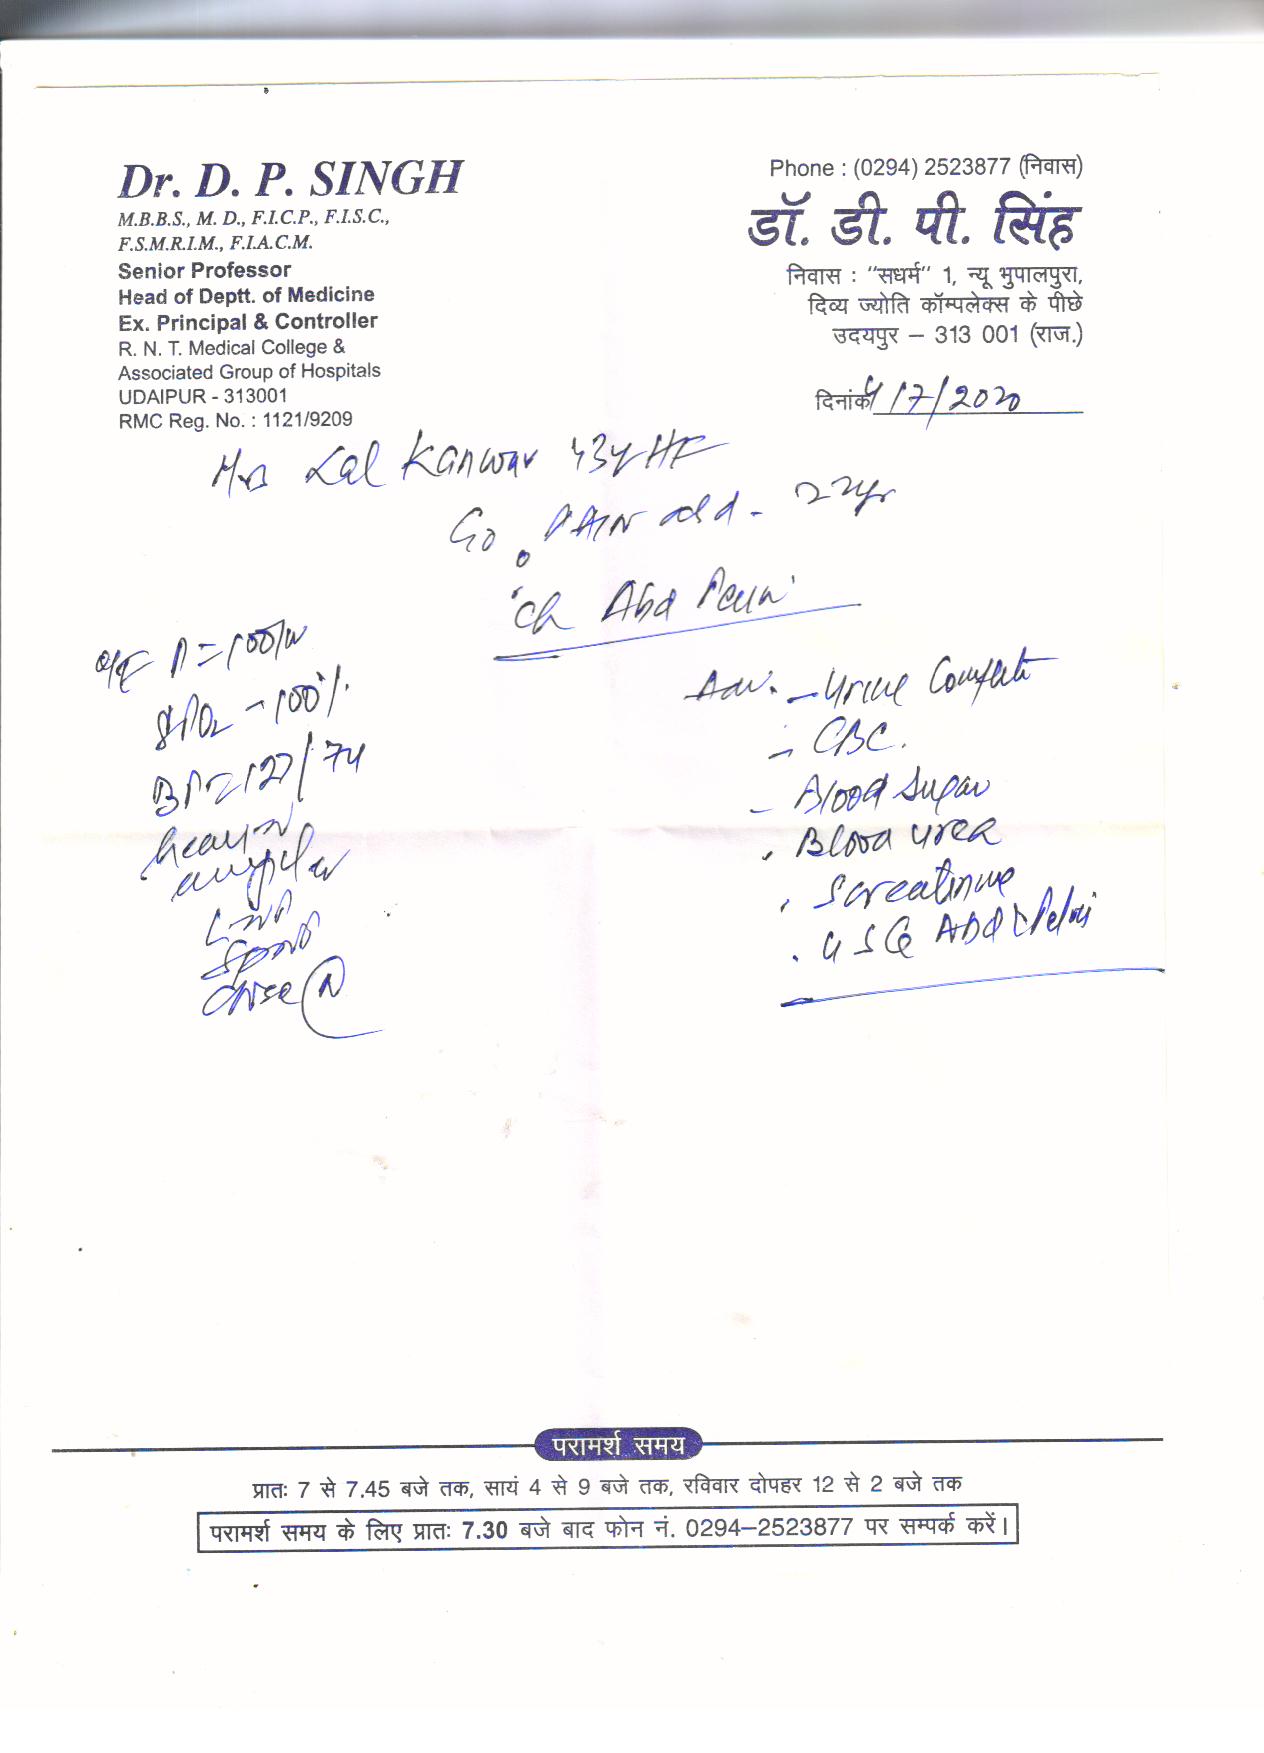 Dr. D. P. SINGH
M.B.B.S., M. D., F.I.C.P., F.I.S.C.,
F.S.M.R.I.M., F.I.A.C.M.
Senior Professor
Head of Deptt. of Medicine
Ex. Principal & Controller
R. N. T. Medical College &
Associated Group of Hospitals
UDAIPUR - 313001
RMC Reg. No. : 1121/9209
Phone : (0294) 2523877 (निवास)
डॉ. डी. पी. सिंह
निवास : “सधर्म” 1, न्यू भुपालपुरा,
दिव्य ज्योति कॉम्पलेक्स के पीछे
उदयपुर – 313 001 (राज.)
दिनांक 4/7/2020
Mrs Lal Kanwar 43y HF
PAIN abd - 22yr
'Ch Abd Pain'
O/E P = 100/m
SPO2 - 100%
BP = 127/74
heart N
LNO
SPNO
Chest (N)
Adv. - Urine Complete
- CBC.
- Blood Sugar
. Blood Urea
. S creatinine
. USG Abd & Pelvis
परामर्श समय
प्रातः 7 से 7.45 बजे तक, सायं 4 से 9 बजे तक, रविवार दोपहर 12 से 2 बजे तक
परामर्श समय के लिए प्रातः 7.30 बजे बाद फोन नं. 0294–2523877 पर सम्पर्क करें।